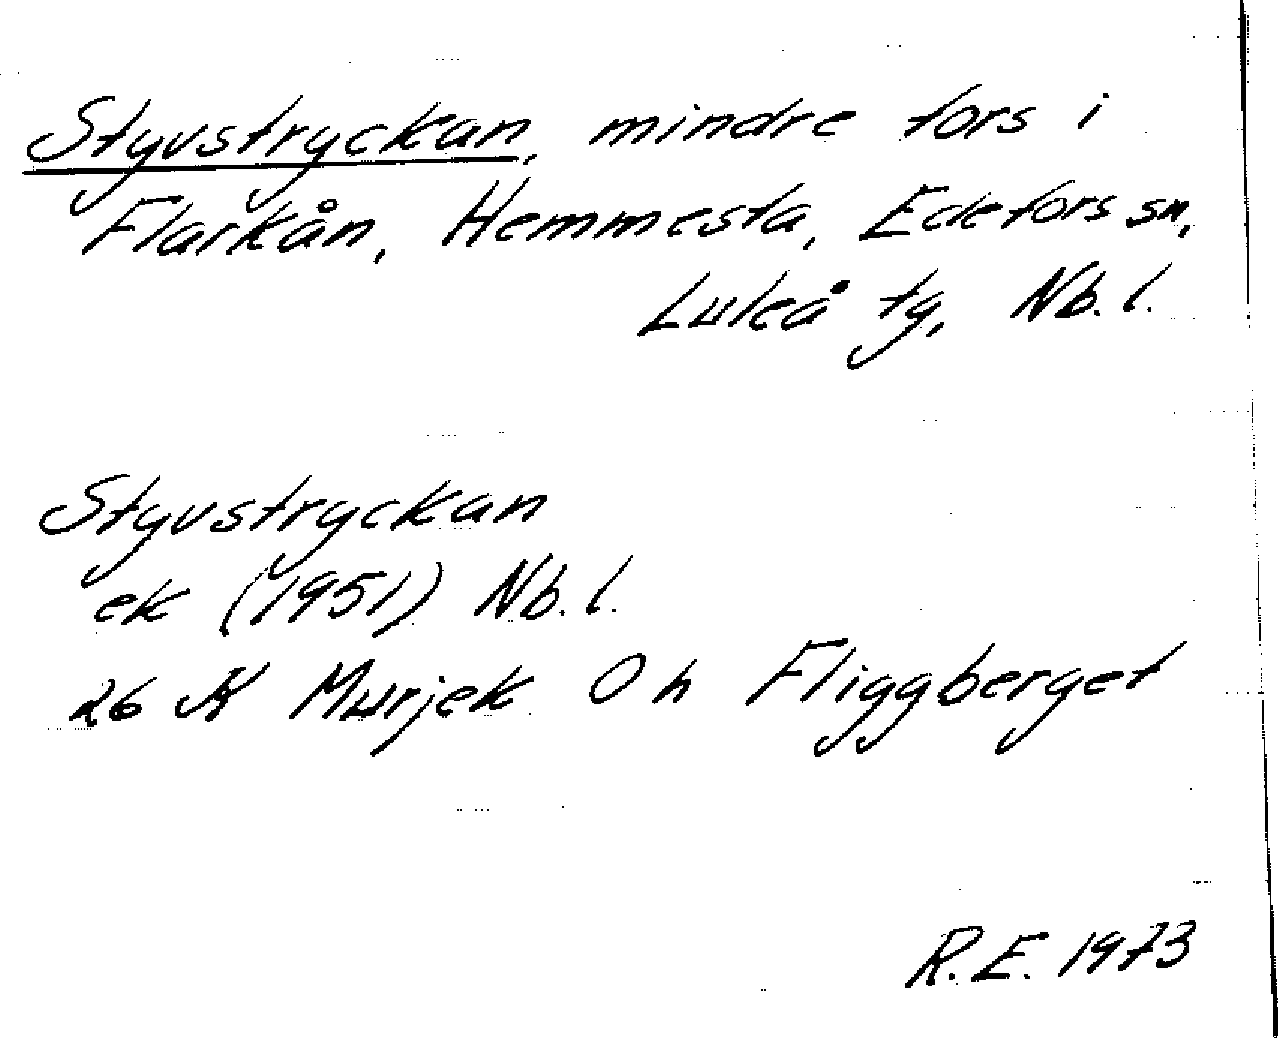 Styvstryckan, mindre fors i
Flarkån, Hemmesta, Edefors sn,
Luleå tg, Nb. l.
Styvstryckan
ek (1951) Nb. l.
26 K Murjek 0 h Fliggberget
R.E. 1973